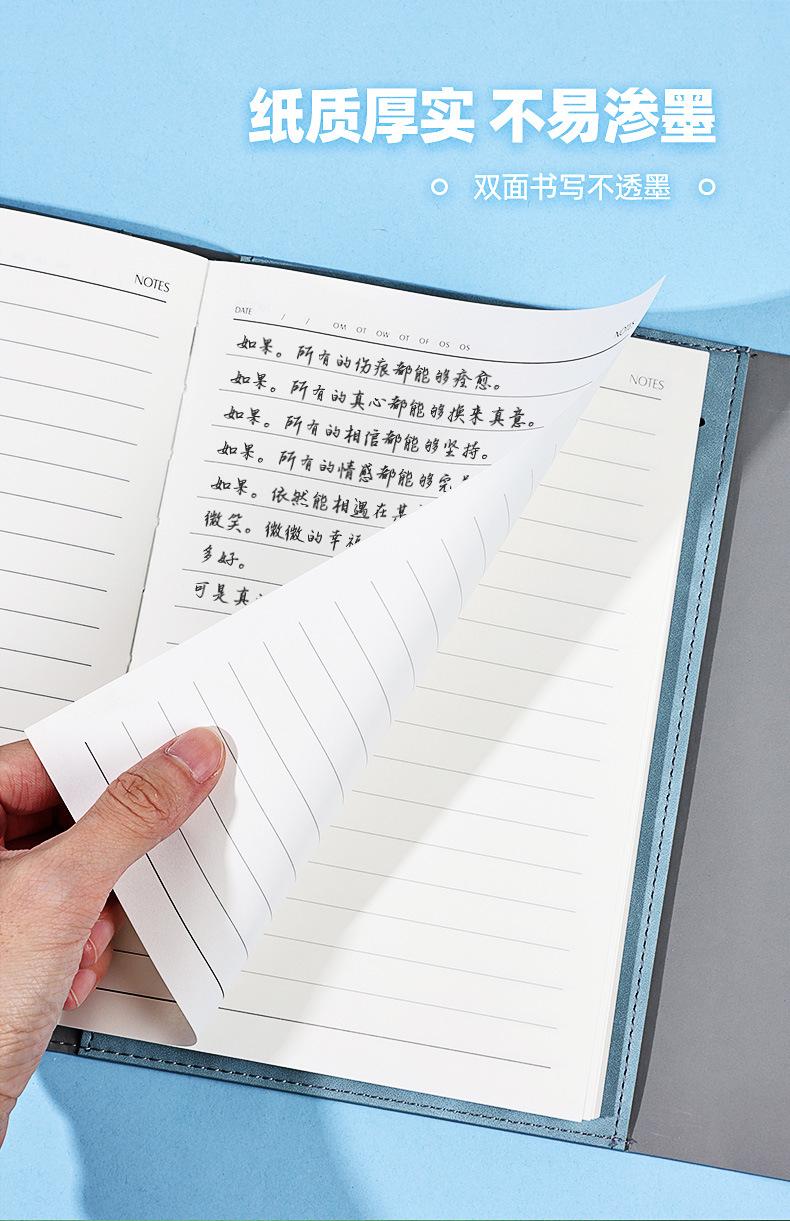 纸质厚实 不易渗墨
双面书写不透墨
NOTES
DATE / / OM OT OW OT OF OS OS
NOTES
如果。所有的伤痕都能够痊愈。
如果。所有的真心都能够换来真意。
如果。所有的相信都能够坚持。
如果。所有的情感都能够完
如果。依然能相遇在某
微笑。微微的幸福
多好。
可是真
NOTES